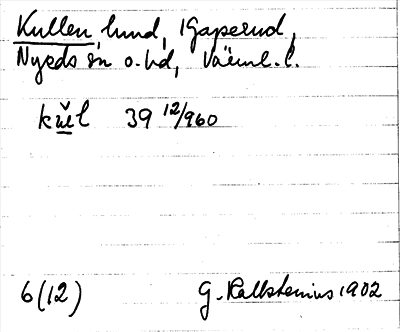 Kullen, hund, Gaperud,
Nyeds sn o. hd, Värml. l.
kŭl 39 12/960
6(12) G. Kallstenius 1902